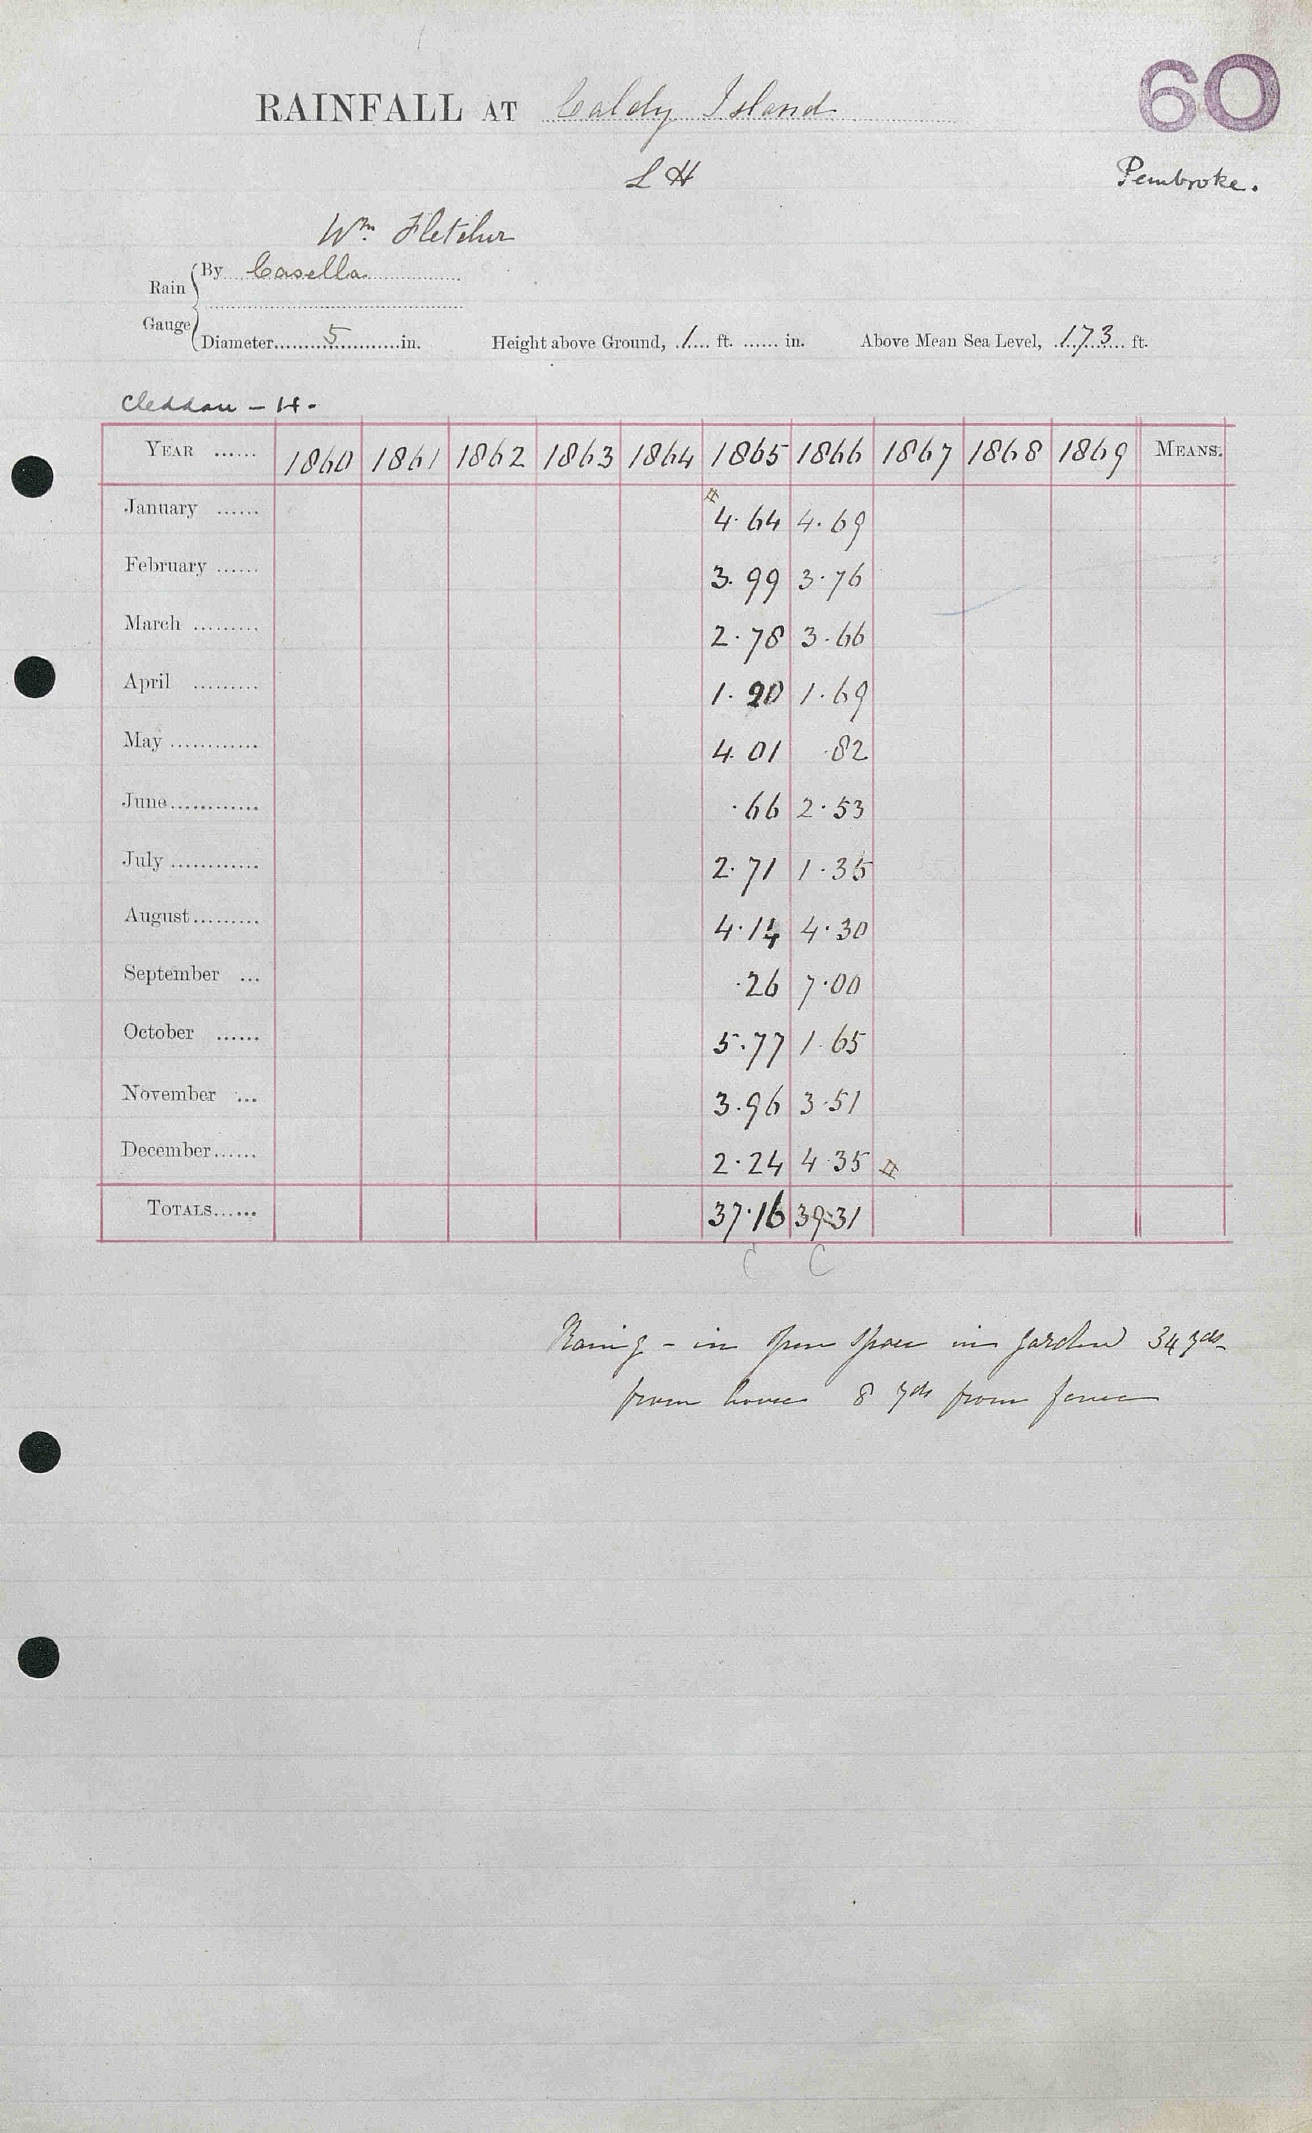 60
RAINFALL AT Caldy Island
L H
Pembroke.
Wm. Fletcher
Rain Gauge
By Casella
Diameter 5 in. Height above Ground, 1 ft. in. Above Mean Sea Level, 173 ft.
Cleddau – H.
YEAR 1860 1861 1862 1863 1864 1865 1866 1867 1868 1869 MEANS.
January 4.64 4.69
February 3.99 3.76
March 2.78 3.66
April 1.90 1.69
May 4.01 .82
June .66 2.53
July 2.71 1.35
August 4.14 4.30
September .26 7.00
October 5.77 1.65
November 3.96 3.51
December 2.24 4.35
TOTALS 37.16 39.31
C C
– in open space in garden 34 yds
from house 8 yds from fence